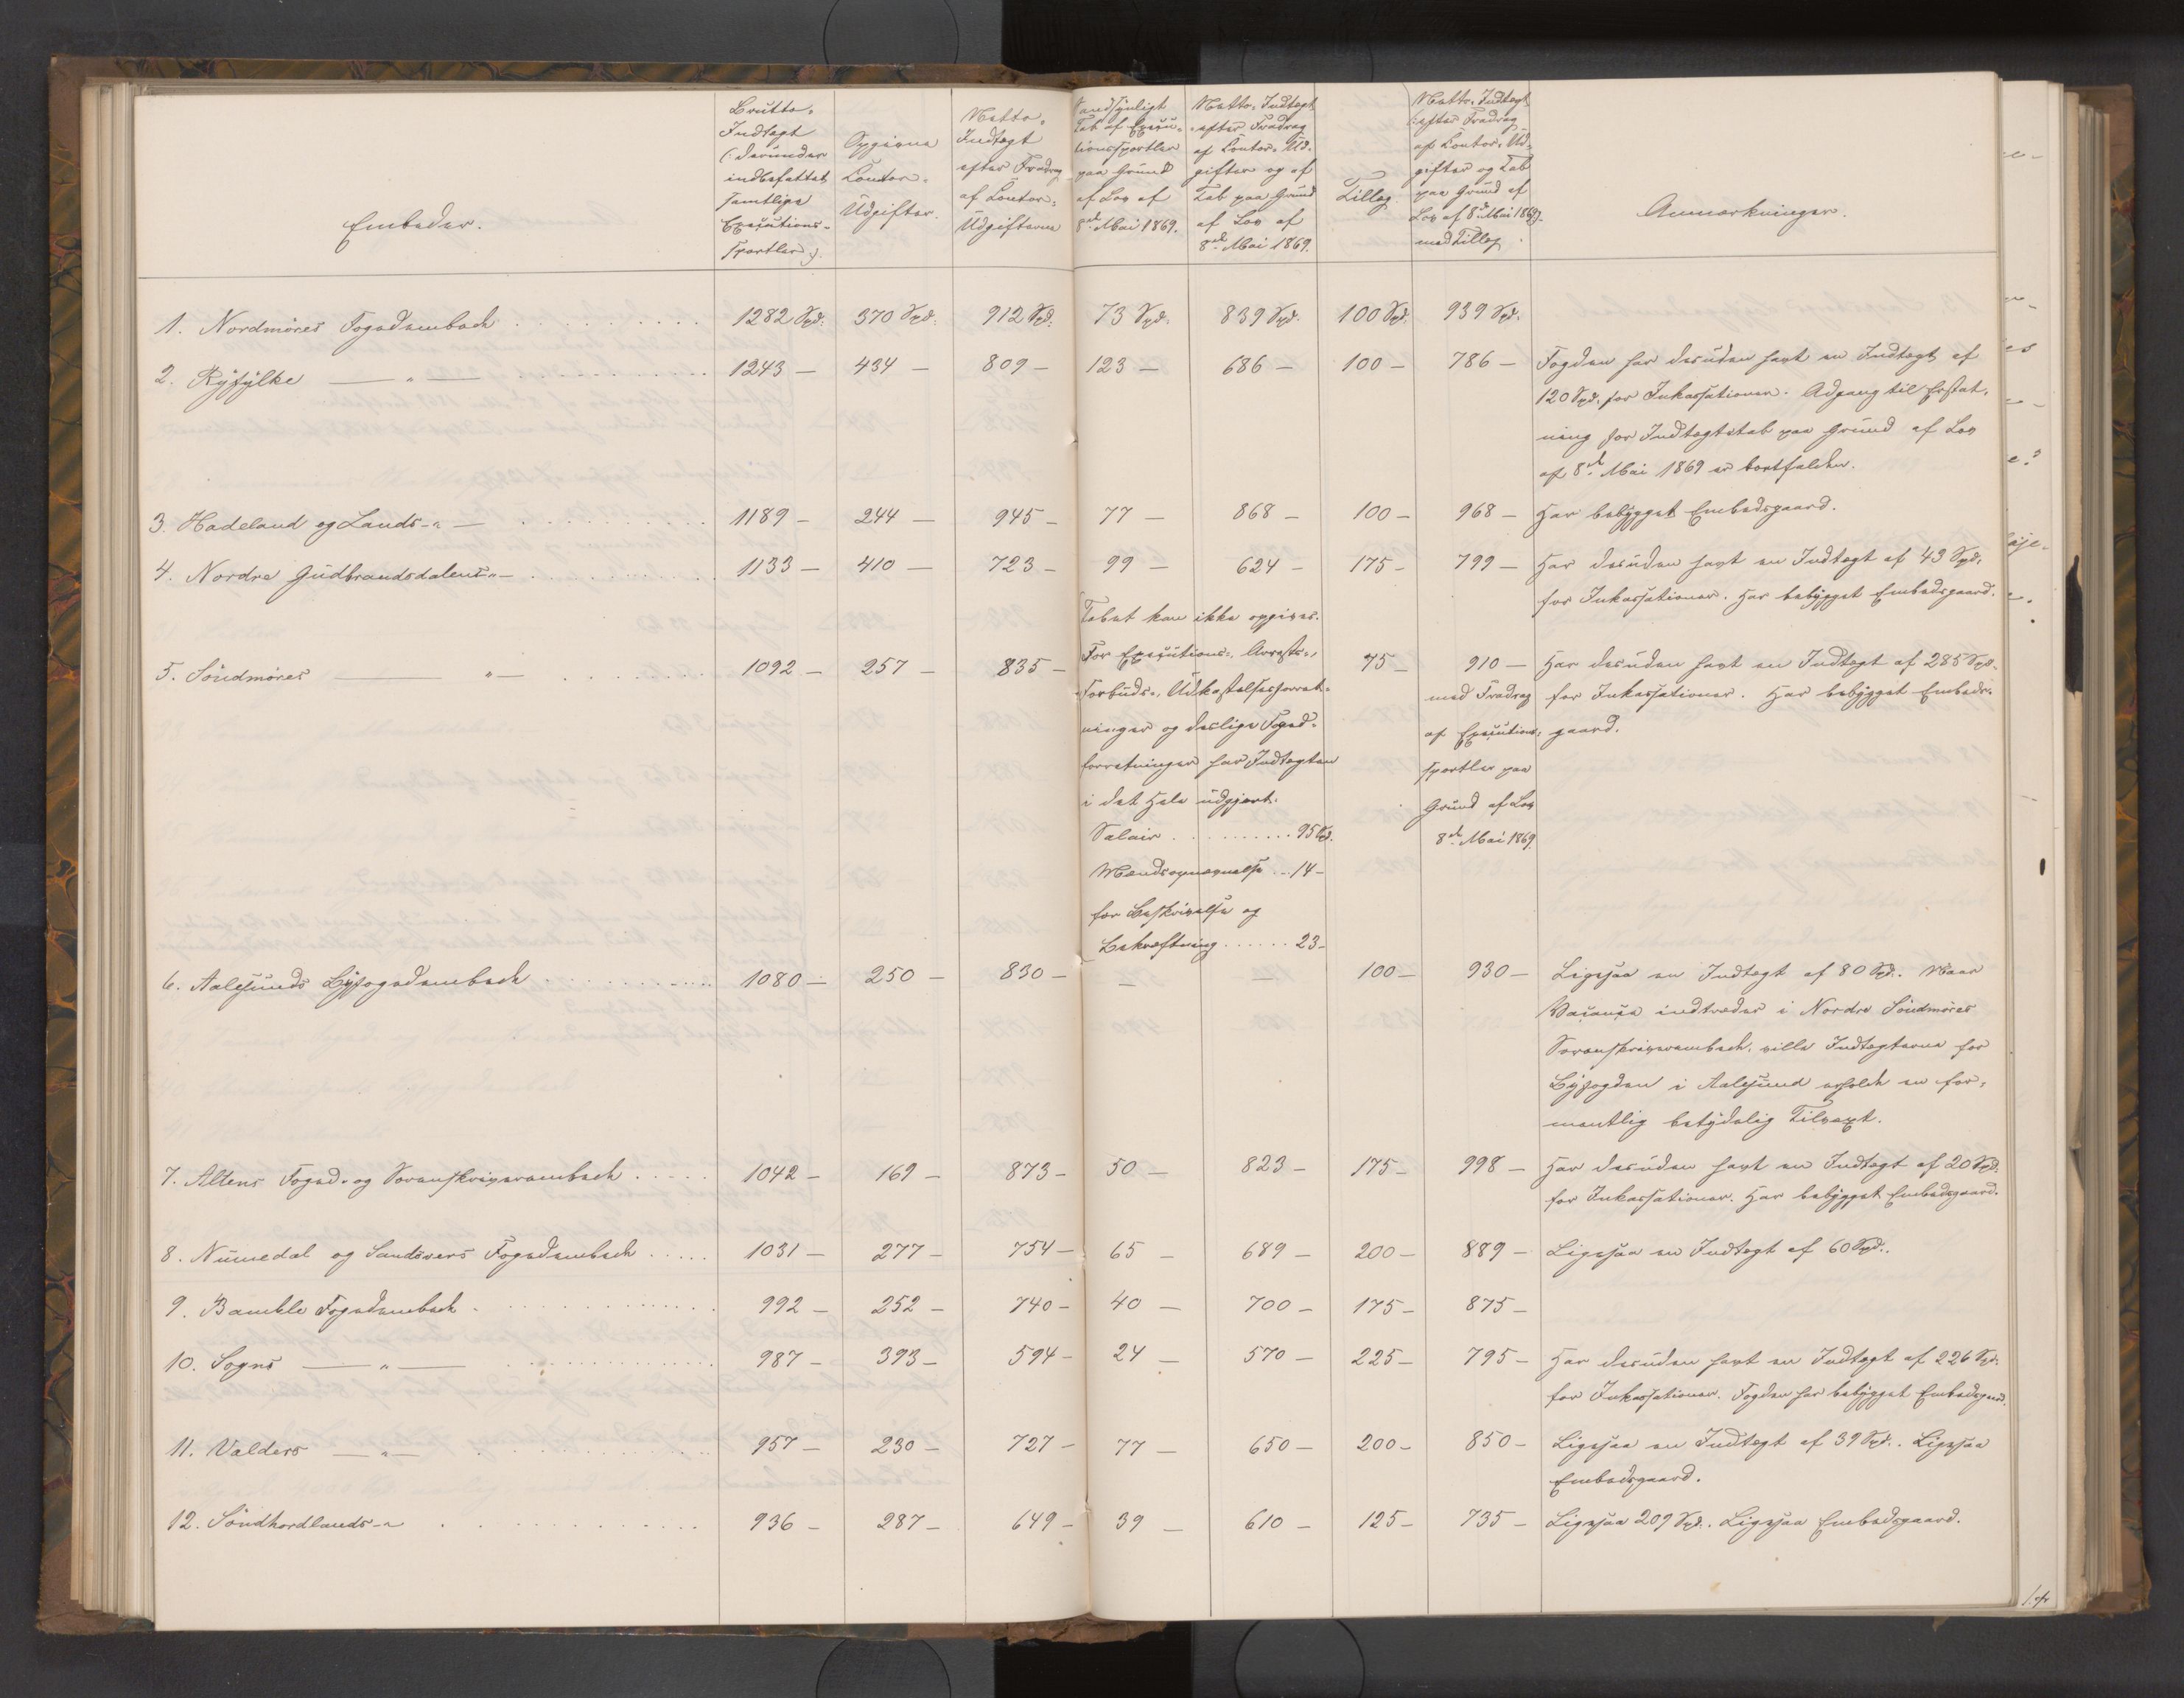 Embeder.
Brutto-
Indtægt
(: derunder
indbefattet
samtlige
Exęcutions-
sportler :).
Opgivne
Contor-
Udgifter.
Netto-
Indtægt
efter Fradrag
af Contor-
Udgifterne
Sandsynligt
Tab af Execu-
tionssportler
paa Grund
af Lov af
8de Mai 1869.
Netto-Indtægt
efter Fradrag
af Contor-Ud-
gifter og af
Tab paa Grund
af Lov af
8de Mai 1869.
Tillæg.
Netto-Indtægt
(: efter Fradrag
af Contor-Ud-
gifter og Tab
paa Grund af
Lov af 8de Mai 1869 :)
med Tillæg.
Anmærkninger.
1. Nordmöres Fogedembede . . . 1282 Spd. 370 Spd. 912 Spd. 73 Spd. 839 Spd. 100 Spd. 939 Spd.
2. Ryfylke — " — . . . 1243 — 434 — 809 — 123 — 686 — 100 — 786 — Fogden har desuden havt en Indtægt af
120 Spd. for Inkassationer. Adgang til Erstat-
ning for Indtægtstab paa Grund af Lov
af 8de Mai 1869 er bortfalden.
3. Hadeland og Lands - " — . . . 1189 — 244 — 945 — 77 — 868 — 100 — 968 — Har bebygget Embedsgaard.
4. Nordre Gudbrandsdalens - " — . . . 1133 — 410 — 723 — 99 — 624 — 175 — 799 — Har desuden havt en Indtægt af 43 Spd.
for Inkassationer. Har bebygget Embedsgaard.
5. Söndmöres — " — . . . 1092 — 257 — 835 — 75 — 910 — Har desuden havt en Indtægt af 285 Spd.
for Inkassationer. Har bebygget Embeds-
gaard.
Tabet kan ikke opgives.
For Executions-, Arrest-,
Forbuds-, Udkastelsesforret-
ninger og deslige Foged-
forretninger har Indtægten
i det Hele udgjort:
Salair . . . 95 Spd.
Mændsopnævnelse . . 14 —
for Beskrivelse og
Bekræftning . . . 23 —
med Fradrag
af Executions-
sportler paa
Grund af Lov
8de Mai 1869.
6. Aalesunds Byfogedembede . . . 1080 — 250 — 830 — — — 100 — 930 — Ligesaa en Indtægt af 80 Spd. Naar
Vacance indtræder i Nordre Söndmöres
Sorenskriverembede, ville Indtægterne for
Byfogden i Aalesund erholde en for-
mentlig betydelig Tilvext.
7. Altens Foged- og Sorenskriverembede . . . 1042 — 169 — 873 — 50 — 823 — 175 — 998 — Har desuden havt en Indtægt af 20 Spd.
for Inkassationer. Har bebygget Embedsgaard.
8. Numedal og Sandsvers Fogedembede . . . 1031 — 277 — 754 — 65 — 689 — 200 — 889 — Ligesaa en Indtægt af 60 Spd.
9. Bamble Fogedembede . . . 992 — 252 — 740 — 40 — 700 — 175 — 875 —
10. Sogns — " — . . . 987 — 393 — 594 — 24 — 570 — 225 — 795 — Har desuden havt en Indtægt af 226 Spd.
for Inkassationer. Fogden har bebygget Embedsgaard.
11. Valders — " — . . . 957 — 230 — 727 — 77 — 650 — 200 — 850 — Ligesaa en Indtægt af 39 Spd. Ligesaa
Embedsgaard.
12. Söndhordlands - " . . . 936 — 287 — 649 — 39 — 610 — 125 — 735 — Ligesaa 209 Spd. Ligesaa Embedsgaard.